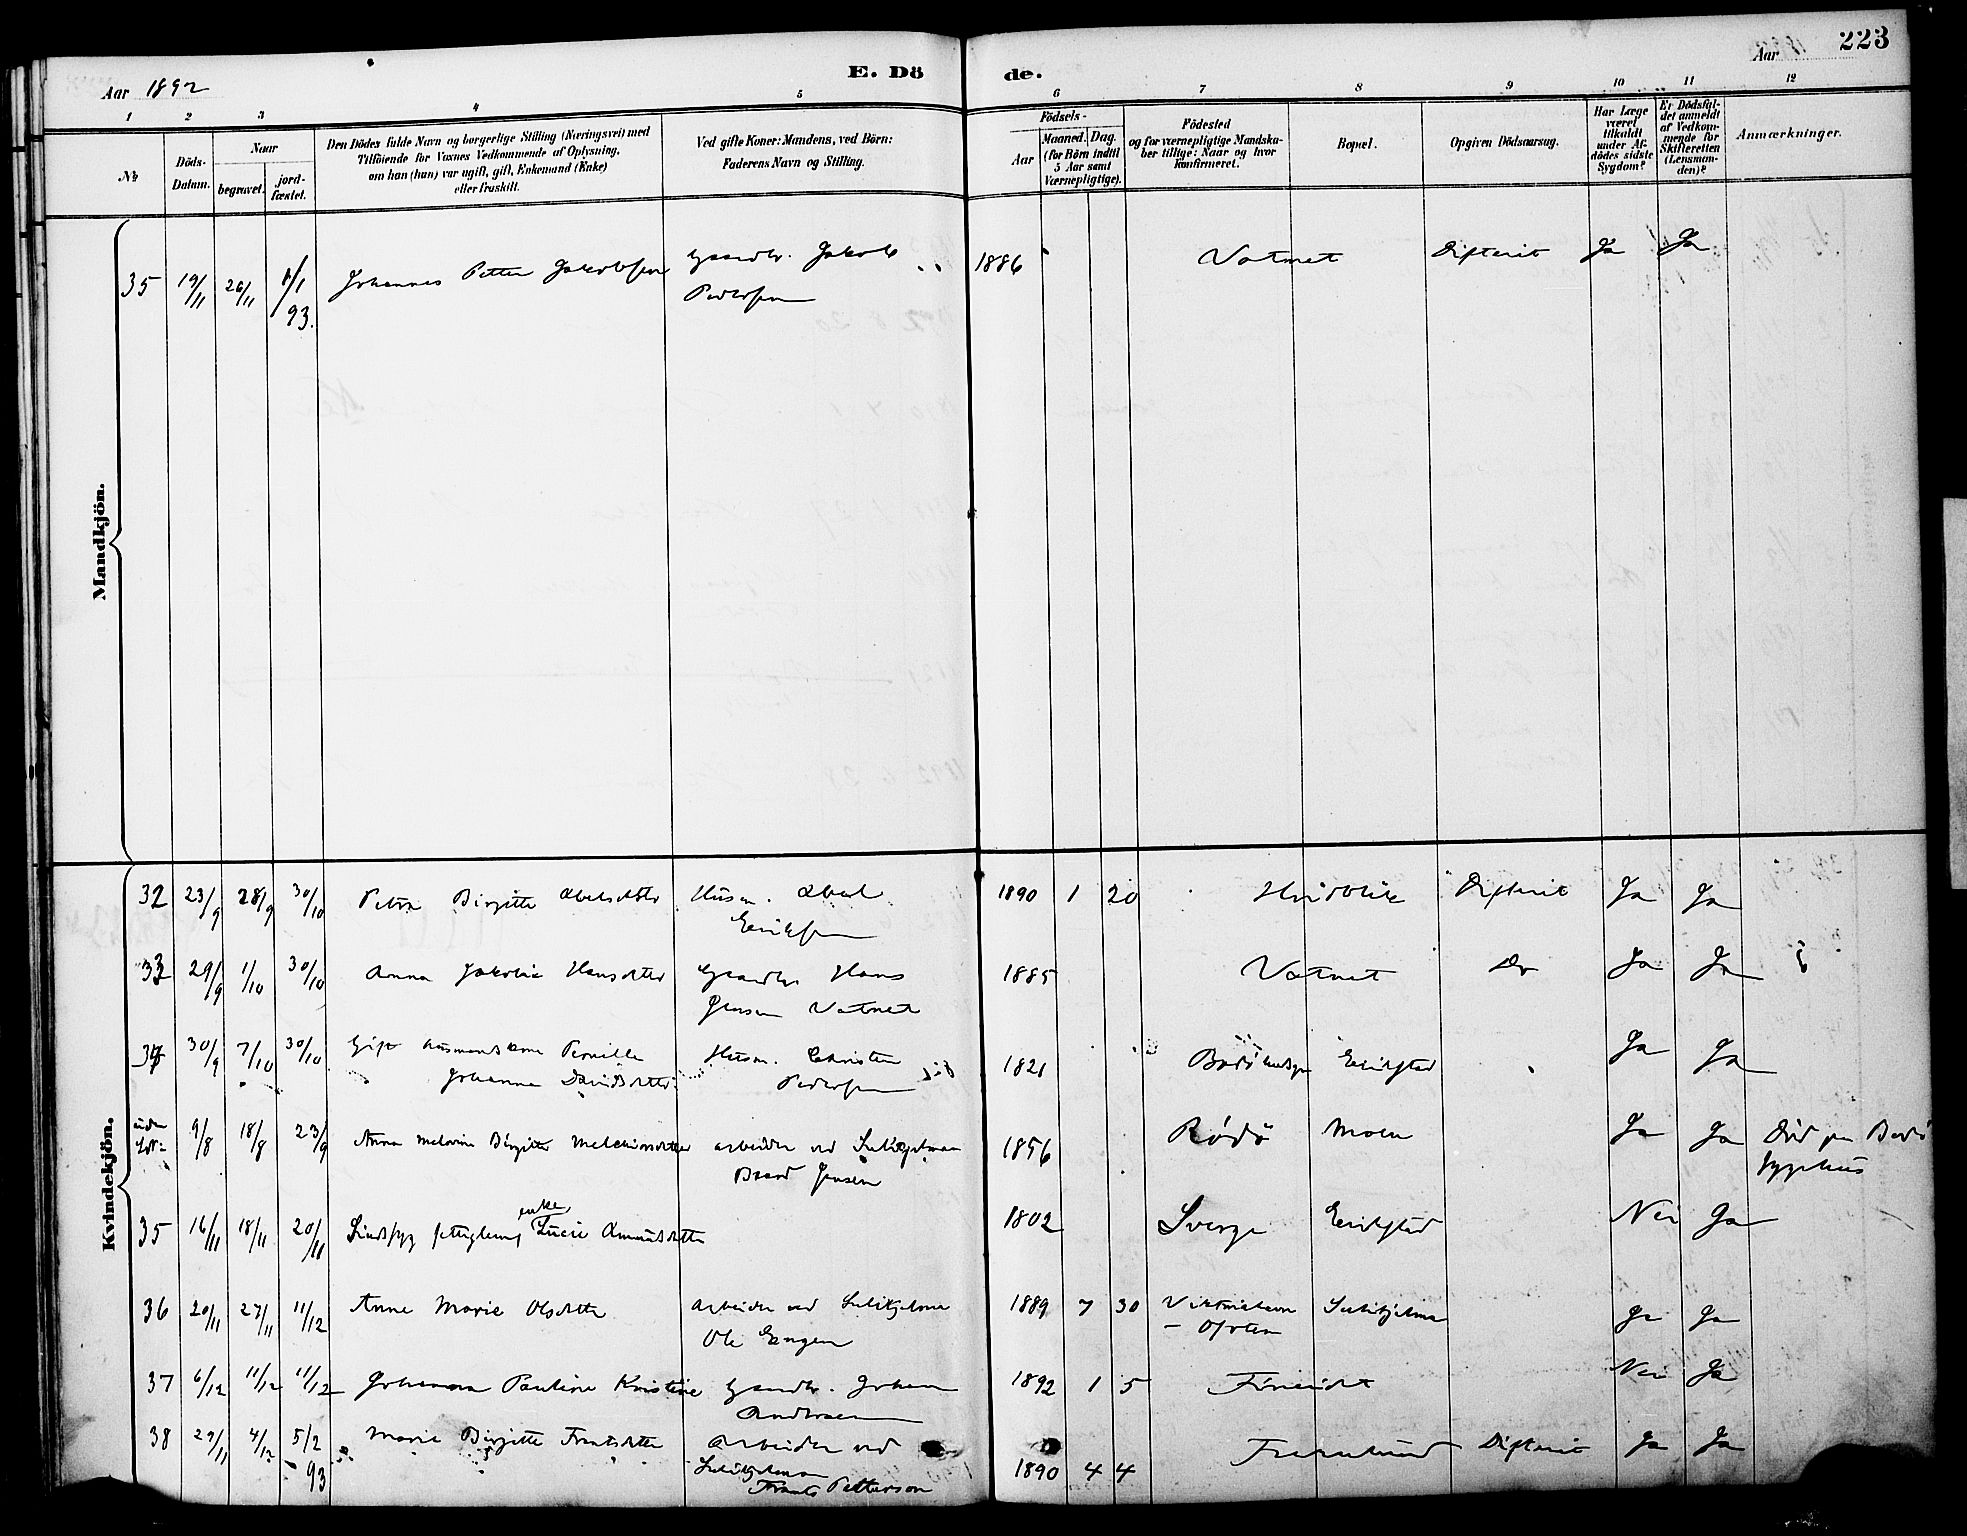 223
Aar 1892
E. Dö
de.
Aar
1 2 3 4 5 6 7 8 9 10 11 12
No
Döds-
Datum.
Naar
begravet.
jord-
fæstet.
Den Dödes fulde Navn og borgerlige Stilling (Næringsvei) med
Tilföiende for Voxnes Vedkommende af Oplysning,
om han (hun) var ugift, gift, Enkemand (Enke)
eller fraskilt.
Ved gifte Koner: Mandens, ved Börn:
Faderens Navn og Stilling.
Födsels-
Aar
Maaned. Dag.
(for Börn indtil
5 Aar samt
Værnepligtige).
Födested
og for værnepligtige Mandska-
ber tillige: Naar og hvor
konfirmeret.
Bopæl.
Opgiven Dödsaarsag.
Har Læge
været
tilkaldt
under Af-
dödes sidste
Sygdom?
Er Dödsfal-
det anmeldt
af Vedkom-
mende for
Skifteretten
(Lensman-
den)?
Anmærkninger.
Mandkjön.
35 19/11 26/11 /1 Johannes Petter Jakobsen Gaardbr. Jakob 1886 Vatnet Difterit Ja Ja
93. Pedersen
Kvindekjön.
32 23/9 28/9 30/10 Petra Birgitte Abelsdtter Husm. Abel 1890 1 20 Hvidblik Difterit Ja Ja
Erikssen
33 29/9 1/10 30/10 Anna Jakobie Hansdtter Gaardbr. Hans 1885 Vatnet Do Ja Ja
Jensen Vatnet
34 30/9 7/10 30/10 Gift husmandskone Pernille Husm. Christen 1821 Bodö Erikstad Ja Ja
Johanna Davidsdtter Pedersen
uden
No 9/8 18/8 23/9 Anna Birgitte Melchiorsdtter arbeider ved Sulitjelma 1856 Rödö Moen Ja Ja Död paa Bodö
Jensen sygehus
enke
35 16/11 18/11 20/11 Sindssyg fattiglem Lucie Amundsdtter 1802 Sverge Erikstad Nei Ja
36 20/11 27/11 11/12 Anne Marie Olsdtter Arbeider ved Sulitjelma 1889 7 30 Victoriahavn Sulitjelma Ja Ja
Ole Engen – Ofoten
37 6/12 11/12 11/12 Johanna Pauline Kristine Gaardbr. Johan 1892 1 5 Nei Ja
Andersen
38 29/11 4/12 5/2 Marie Birgitte Frantsdtter Arbeider ved Difterit Ja Ja
93 Sulitjelma 1890 4 4
Frants Petterson